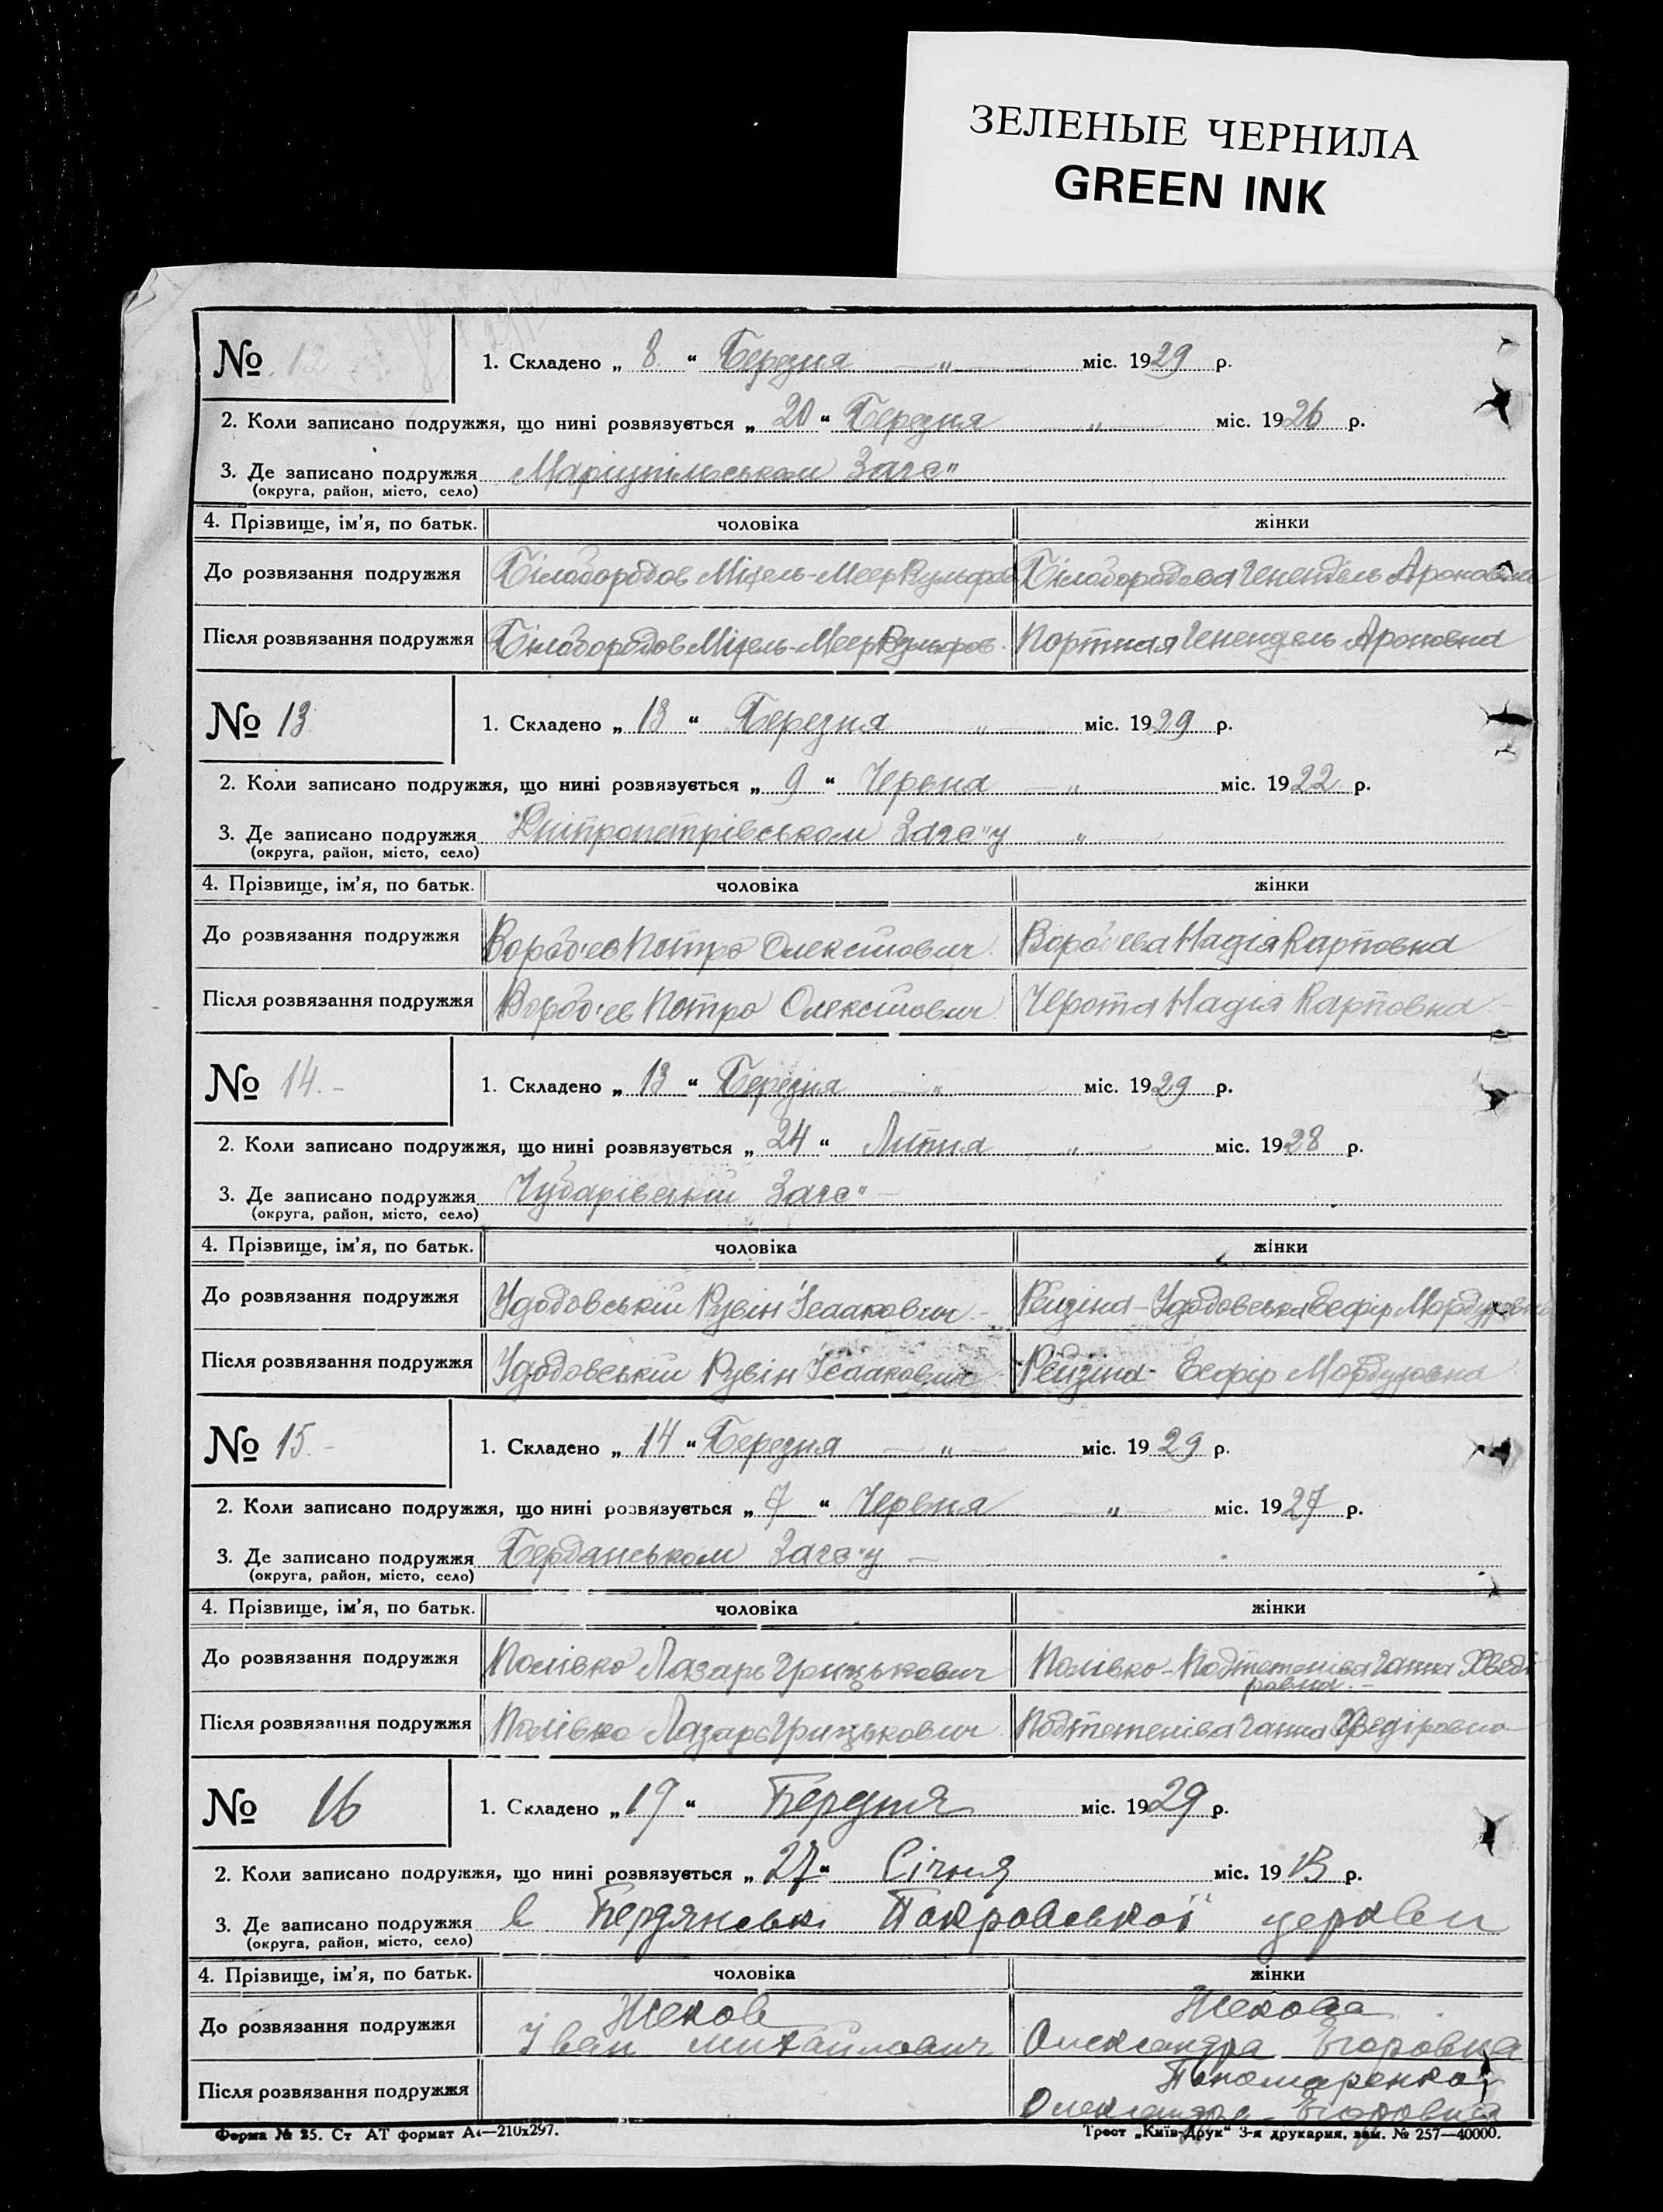 ЗЕЛЕНЫЕ ЧЕРНИЛА
GREEN INK
№ 12 1. Складено „ 8 “ Березня — „ — міс. 1929 р.
2. Коли записано подружжя, що нині розвязується „ 20 “ Березня — „ — міс. 1926 р.
3. Де записано подружжя Маріупільськом Загс"
(округа, район, місто, село)
4. Прізвище, ім'я, по батьк. чоловіка жінки
До розвязання подружжя Білобородов Міхель-Меер Вульфов Білобородова Ченендель Ароновна
Після розвязання подружжя Білобородов Міхель-Меер Вульфов. Портная Ченендель Ароновна
№ 13 1. Складено „ 13 “ Березня — „ — міс. 1929 р.
2. Коли записано подружжя, що нині розвязується „ 9 “ Червня — „ — міс. 1922 р.
3. Де записано подружжя Дніпропетрівськом Загс"у — „ —
(округа, район, місто, село)
4. Прізвище, ім'я, по батьк. чоловіка жінки
До розвязання подружжя Вороб'ев Петро Олексійович. Вороб'ева Надія Карповна
Після розвязання подружжя Вороб'ев Петро Олексійович. Черота Надія Карповна
№ 14.- 1. Складено „ 13 “ Березня — „ — міс. 1929 р.
2. Коли записано подружжя, що нині розвязується „ 24 “ Липня — „ — міс. 1928 р.
3. Де записано подружжя Чубарівський Загс" —
(округа, район, місто, село)
4. Прізвище, ім'я, по батьк. чоловіка жінки
До розвязання подружжя Удодовський Рувін Ісаакович - Рейзіна-Удодовська Есфір Мордуховна
Після розвязання подружжя Удодовський Рувін Ісаакович Рейзіна- Есфір Мордуховна
№ 15.- 1. Складено „ 14 “ Березня — „ — міс. 1929 р.
2. Коли записано подружжя, що нині розвязується „ 7 “ Червня — „ — міс. 1927 р.
3. Де записано подружжя Бердянськом Загс"у —
(округа, район, місто, село)
4. Прізвище, ім'я, по батьк. чоловіка жінки
До розвязання подружжя Полівко Лазарь Грицькович Полівко-Подтетеніва Ганна Хведі
ровна.-
Після розвязання подружжя Полівко Лазарь Грицькович Подтетеніва Ганна Хведіровна
№ 16 1. Складено „ 19 “ Березня міс. 1929 р.
2. Коли записано подружжя, що нині розвязується „ 27 “ Січня міс. 1913 р.
3. Де записано подружжя в Бердянські Покровської церкви
(округа, район, місто, село)
4. Прізвище, ім'я, по батьк. чоловіка жінки
Жеков Жекова
До розвязання подружжя Іван Михайлович Олександра Егоровна
Пономаренко
Після розвязання подружжя Олександра Егоровна
Форма № 25. Ст АТ формат А4—210х297. Трест „Київ-Друк“ 3-я друкарня, зам. № 257—40000.